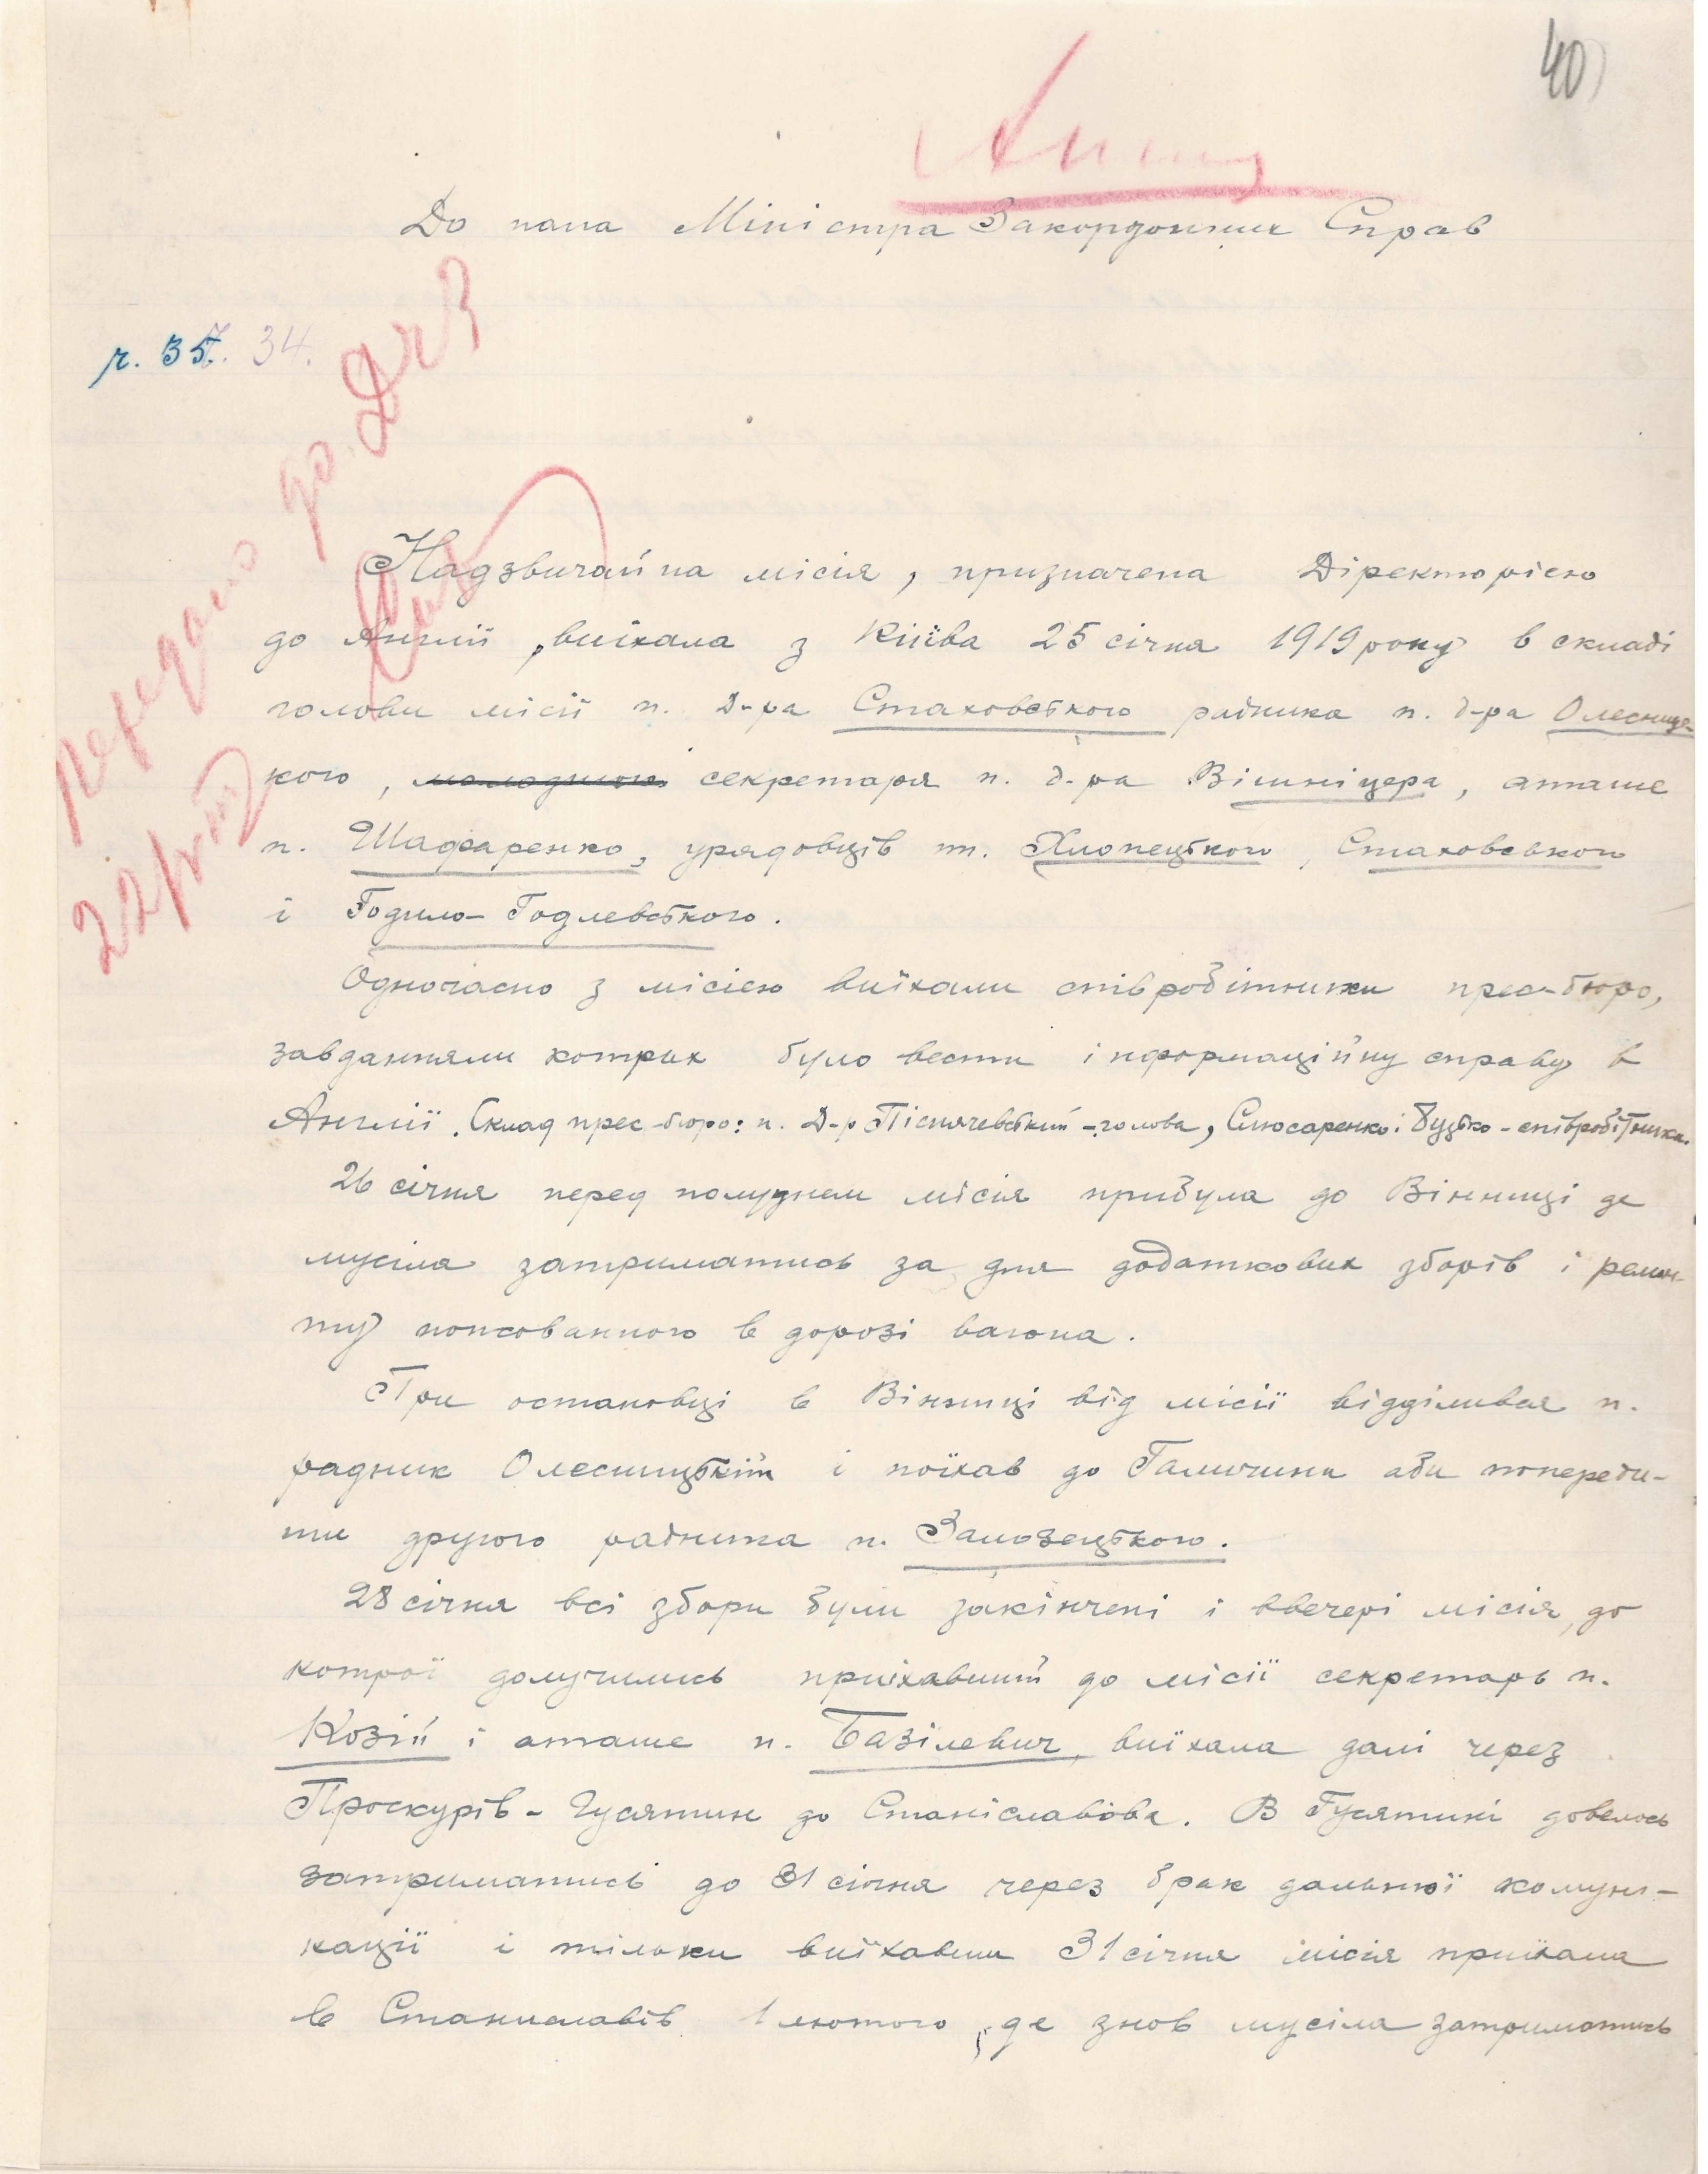 40
До пана Міністра Закордонних Справ
ч. 35. 34.
передано до
Надзвичайна місія, призначена Діректорією
до Англії, виїхала з Київа 25 січня 1919 року в складі
голови місії п. Д-ра Стаховського радника п. д-ра Олесниць-
кого, секретаря п. д-ра Вішніцера, аташе
п. Шафаренко, урядовців пп. Хлопецького, Стаховського
і Годило-Годлевського.
Одночасно з місією виїхали співробітники прес-бюро,
завданнями котрих було вести інформаційну справу в
Англії. Склад прес-бюро: п. Д-р Піснячевський - голова, Слюсаренко і Буцько - співробітники.
26 січня перед полуднем місія прибула до Вінниці де
мусіла затриматись за для додаткових зборів і ремон-
ту попсованного в дорозі вагона.
При остановці в Вінниці від місії відділився п.
радник Олесницький і поїхав до Галичини аби попереди-
ти другого радника п. Залозецького.
28 січня всі збори були закінчені і ввечері місія, до
котрої долучились приїхавший до місії секретарь п.
Козій і аташе п. Базілевич, виїхала далі через
Проскурів - Гусятин до Станіславова. В Гусятині довелось
затриматись до 31 січня через брак дальної комуні-
кації і тільки виїхавши 31 січня місія приїхала
в Станиславів 1 лютого, де знов мусіла затриматись